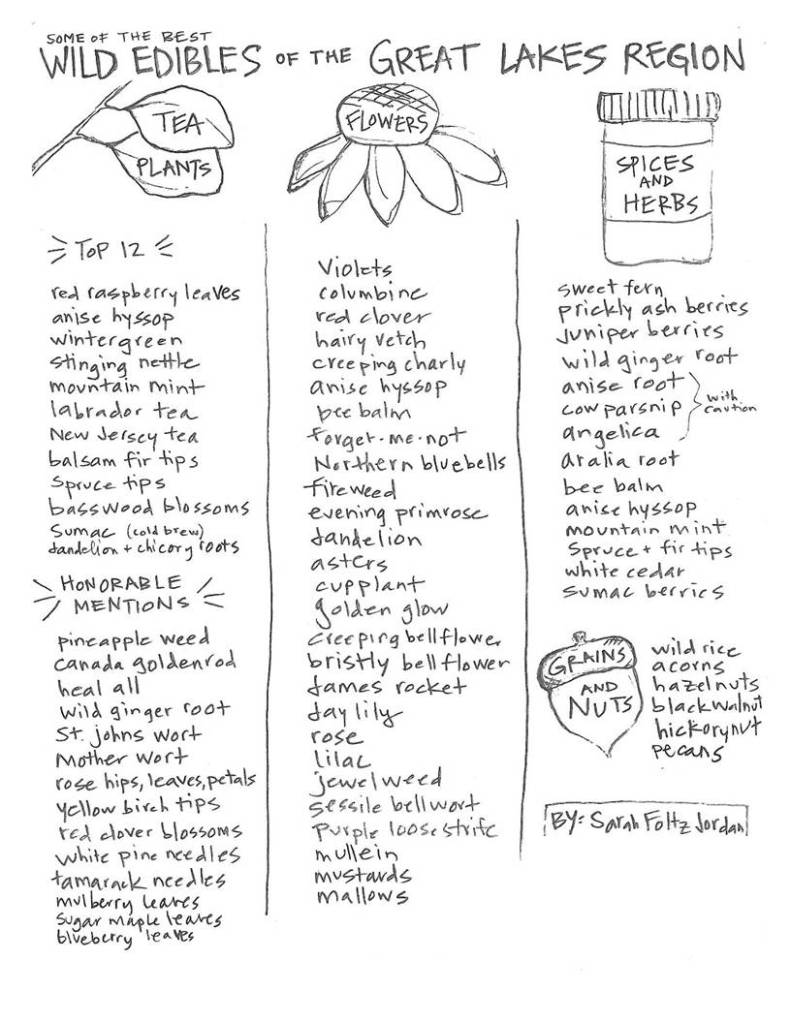 SOME OF THE BEST
WILD EDIBLES OF THE GREAT LAKES REGION
TEA
PLANTS
TOP 12
red raspberry leaves
anise hyssop
wintergreen
stinging nettle
mountain mint
labrador tea
New Jersey tea
balsam fir tips
Spruce tips
basswood blossoms
Sumac (cold brew)
dandelion + chicory roots
HONORABLE
MENTIONS
pineapple weed
Canada goldenrod
heal all
wild ginger root
St. johns wort
Mother wort
rose hips, leaves, petals
yellow birch tips
red clover blossoms
white pine needles
tamarack needles
mulberry leaves
sugar maple leaves
blueberry leaves
FLOWERS
Violets
columbine
red clover
hairy vetch
creeping charly
anise hyssop
bee balm
forget-me-not
Northern bluebells
fireweed
evening primrose
dandelion
asters
cup plant
golden glow
creeping bellflower
bristly bellflower
dames rocket
day lily
rose
lilac
jewelweed
sessile bellwort
Purple loosestrife
mullein
mustards
mallows
SPICES
AND
HERBS
sweet fern
prickly ash berries
juniper berries
wild ginger root
anise root
cow parsnip
angelica
with
caution
aralia root
bee balm
anise hyssop
mountain mint
Spruce + fir tips
white cedar
sumac berries
GRAINS
AND
NUTS
wild rice
acorns
hazelnuts
black walnut
hickorynut
pecans
BY: Sarah Foltz Jordan